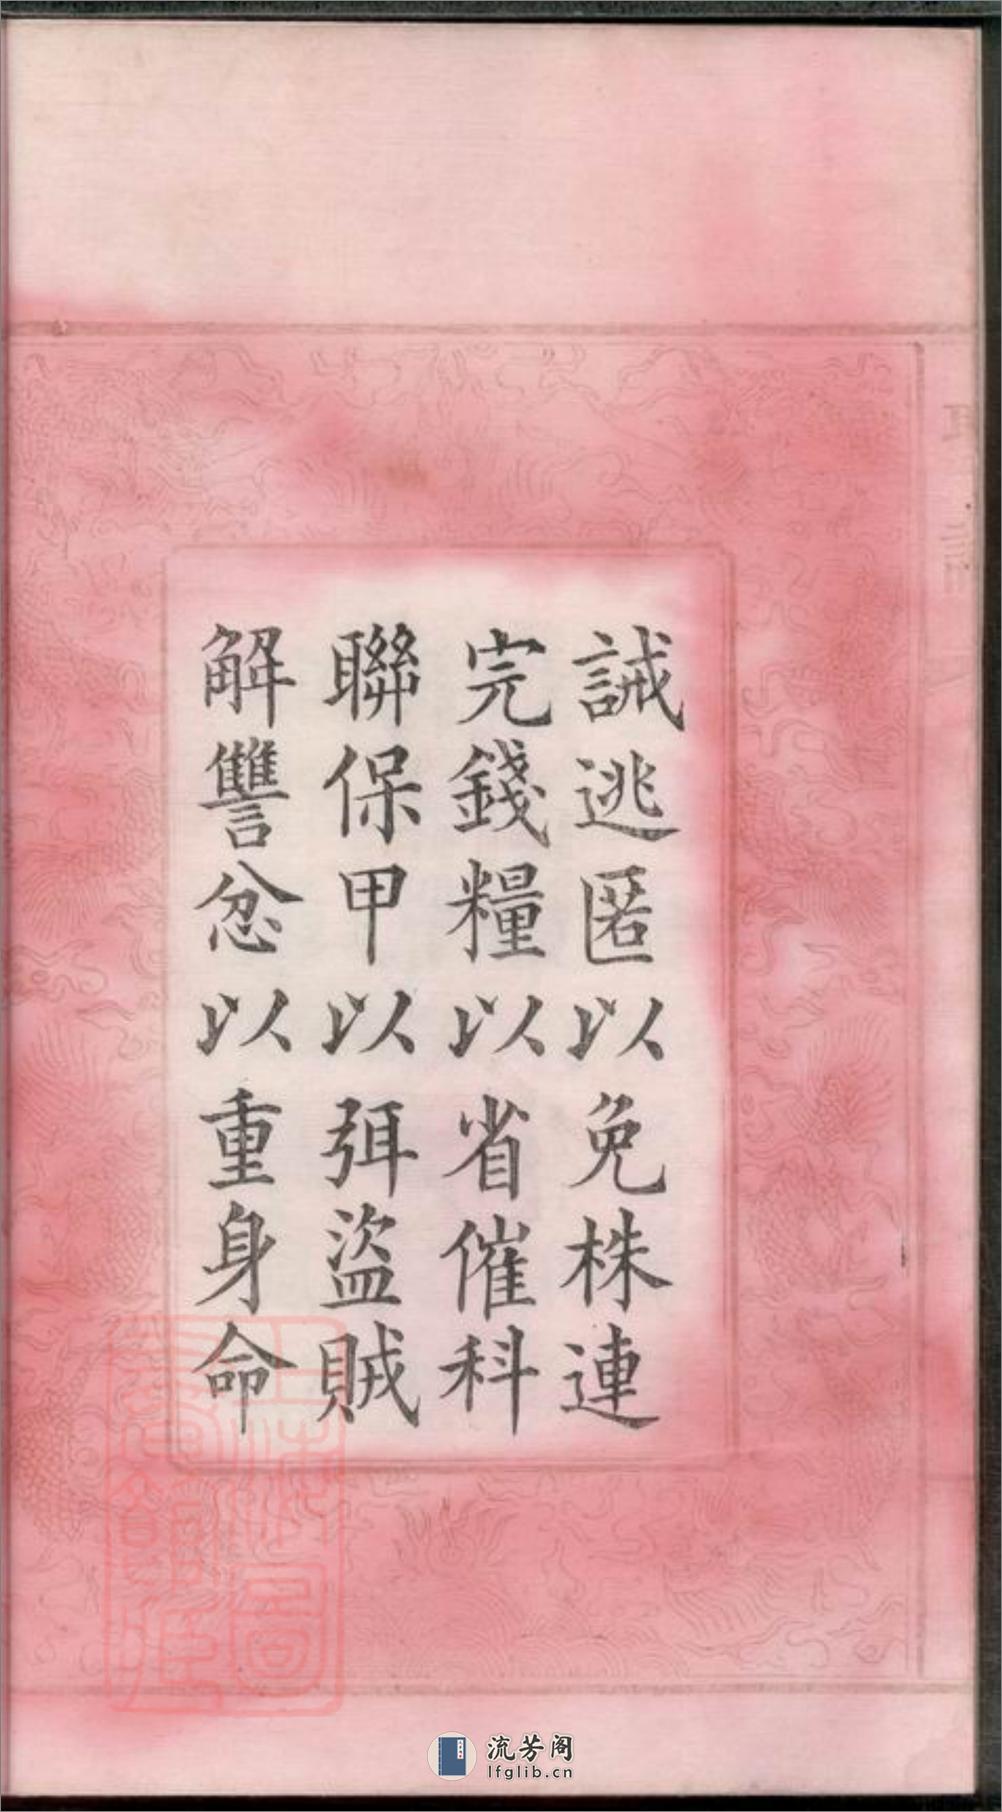 誡逃匿以免株連
完錢糧以省催科
聯保甲以弭盜賊
解讐忿以重身命
流芳阁
lfglib.cn